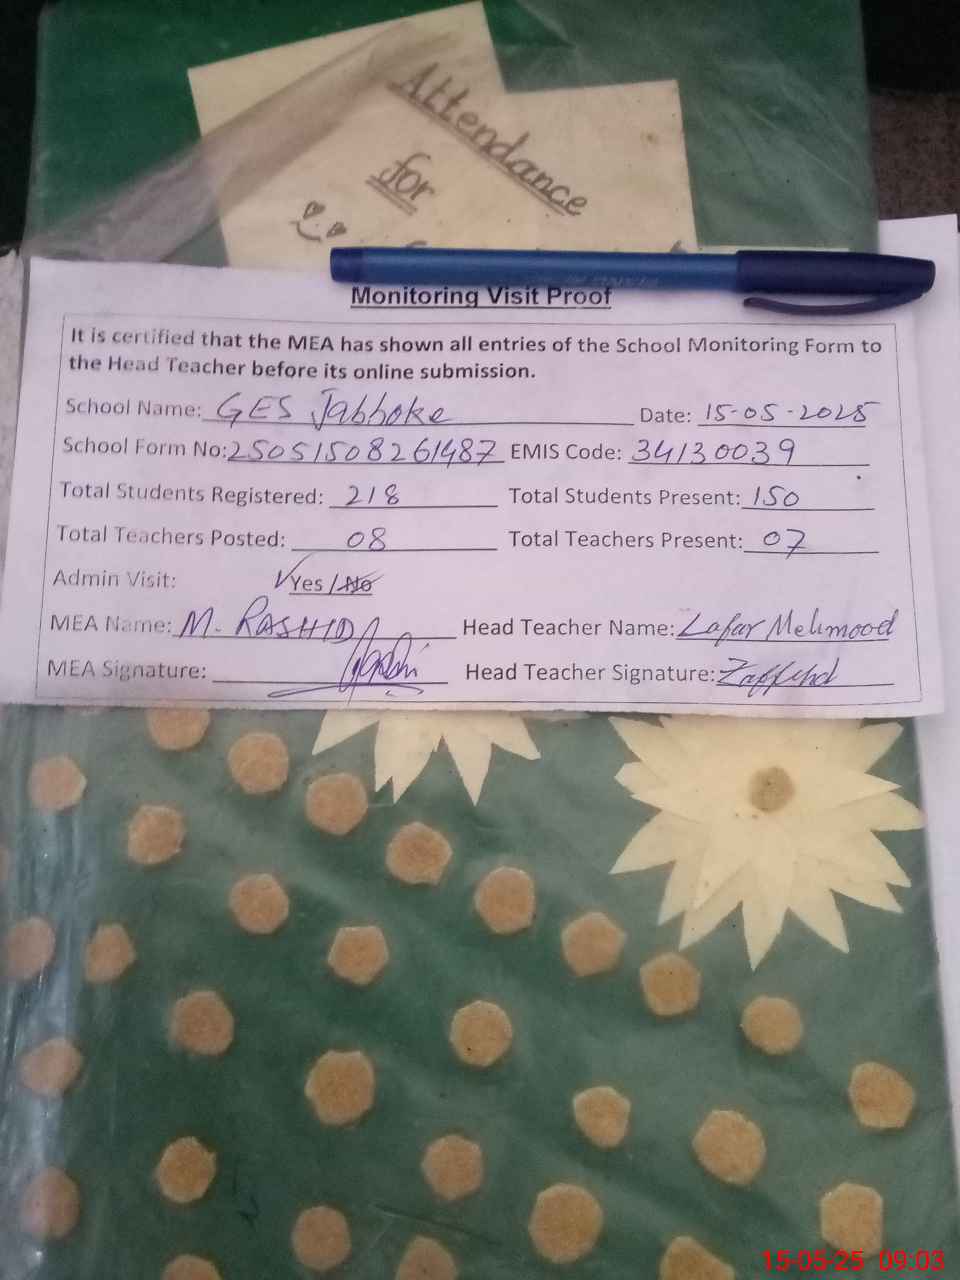 Attendance
for
Monitoring Visit Proof
It is certified that the MEA has shown all entries of the School Monitoring Form to
the Head Teacher before its online submission.
School Name: GES Jabboke Date: 15-05-2025
School Form No: 25051508261487 EMIS Code: 34130039
Total Students Registered: 218 Total Students Present: 150
Total Teachers Posted: 08 Total Teachers Present: 07
Admin Visit: ✓Yes / No
MEA Name: M. RASHID Head Teacher Name: Zafar Mehmood
MEA Signature: Head Teacher Signature:
15-05-25 09:03